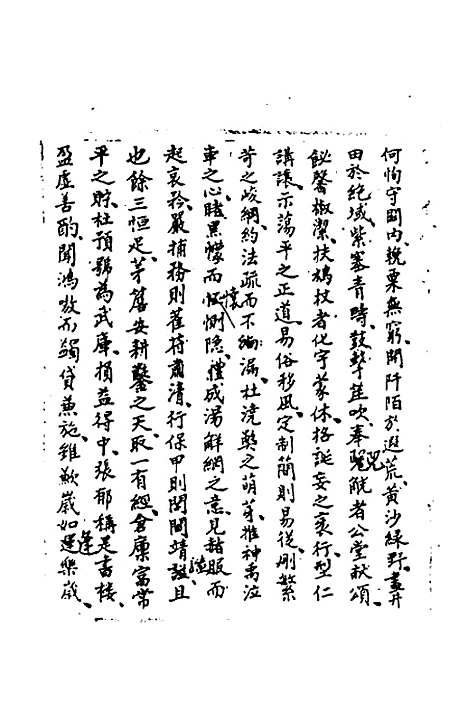 何恂守圉内輓粟無窮開阡陌於遐荒黃沙綠野畫井
田於絶域紫塞青疇鼓擊莛吹奉兕觥者公堂献頌
飶馨椒潔扶鳩杖者化宇蒙休格誕妄之衷行型仁
講讓示蕩平之正道易俗移風定制簡則易從刪繁
苛之峻網約法疏而不漏杜澆獘之萌芽推神禹泣
車之心睹黑幪而懷惻隐體成湯解網之意見赭服而
起哀矜嚴捕務則萑苻肅清行保甲則閭閻靖謐且
也餘三恒足茅簷安耕鑿之天取一有經倉廩富常
平之貯杜預號為武庫損益得中張郁稱是書樓
盈虚善酌聞鴻嗷而蠲貸蕪施雖歉歲如逢樂歲